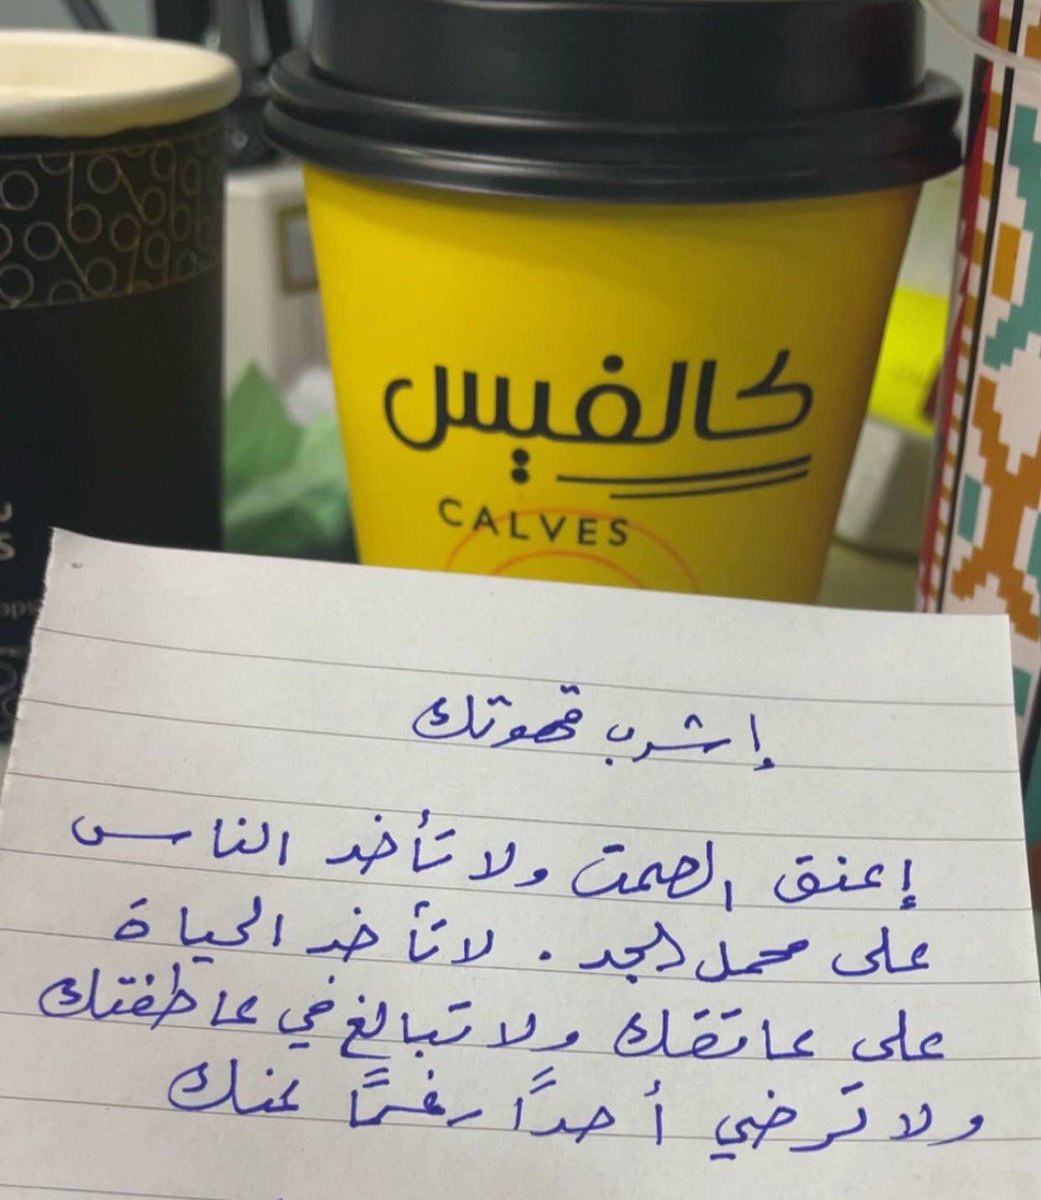 كالفيس
CALVES
إشرب قهوتك
إعنق الصمت ولا تأخد الناس
على محمل الجد . لا تأخد الحياة
على عاتقك ولا تبالغ في عاطفتك
ولا ترضي أحدًا رغمًا عنك